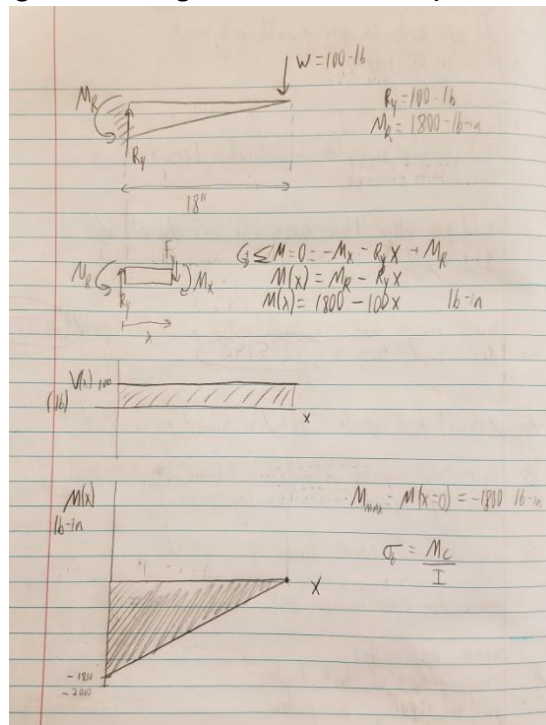 W = 100-lb
M_R
R_y = 100-lb
M_R = 1800-lb-in
R_y
18"
↺ Σ M = 0 = -M_x - R_y x + M_R
M_R
M_x
M(x) = M_R - R_y x
R_y
M(x) = 1800 - 100x lb-in
x
V(x) 100
(lb)
x
M(x)
lb-in
M_max = M(x=0) = -1800 lb-in
σ_b = Mc / I
X
-1800
-2000